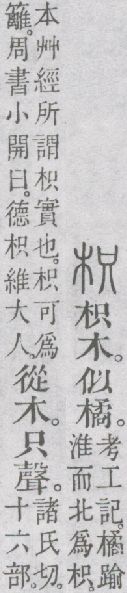 枳 枳木。似橘。考工記。橘踰
淮而北爲枳。
本艸經所謂枳實也。枳可爲
籬。周書小開曰。德枳維大人。
從木。只聲。諸氏切。
十六部。